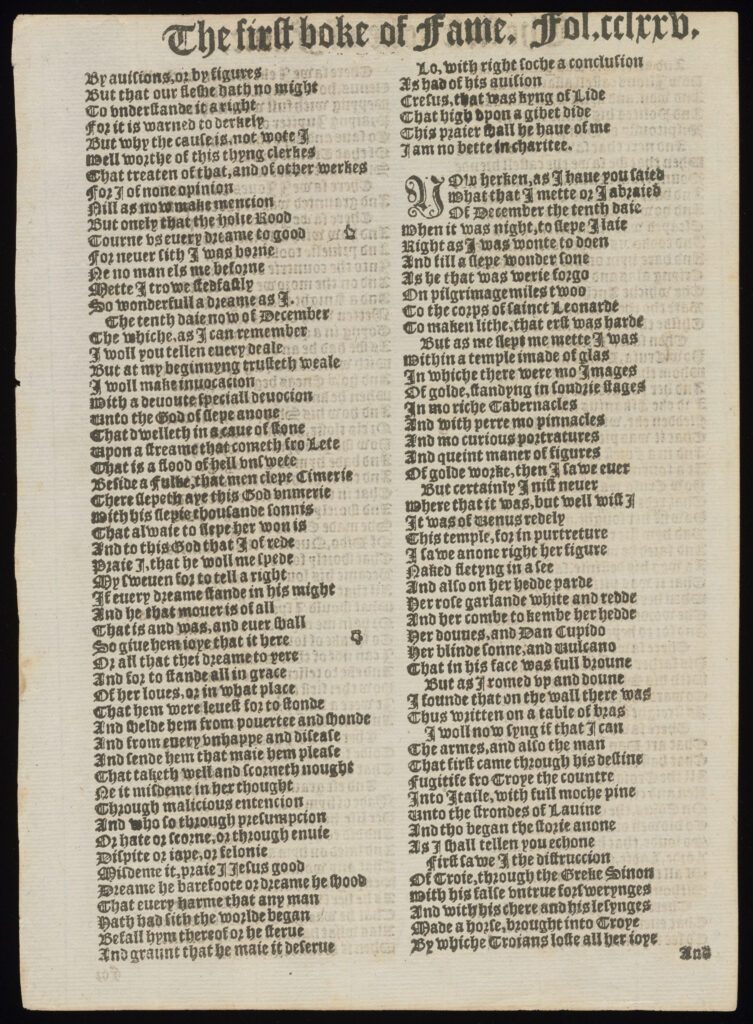 The first boke of Fame. Fol.cclxxv.
By auisions, or by figures
But that our fleshe hath no might
To vnderstande it aright
For it is warned to derkely
But why the cause is, not wote I
Well worthe of this thyng clerkes
That treaten of that, and of other werkes
For I of none opinion
Nill as now make mencion
But onely that the holie Rood
Tourne vs euery dreame to good
For neuer sith I was borne
Ne no man els me beforne
Mette I trowe stedfastly
So wonderfull a dreame as I.
The tenth daie now of December
The whiche, as I can remember
I woll you tellen euery deale
But at my beginnyng trusteth weale
I woll make inuocacion
With a deuoute speciall deuocion
Unto the God of slepe anone
That dwelleth in a caue of stone
Upon a streame that cometh fro Lete
That is a flood of hell vnswete
Beside a Fulke, that men clepe Cimerie
There slepeth aye this God vnmerie
With his slepie thousande sonnis
That alwaie to slepe her won is
And to this God that I of rede
Praie I, that he woll me spede
My sweuen for to tell a right
If euery dreame stande in his might
And he that mouer is of all
That is and was, and euer shall
So giue hem ioye that it here
Or all that thei dreame to yere
And for to stande all in grace
Of her loues, or in what place
That hem were leuest for to stonde
And shelde hem from pouertee and shonde
And from euery vnhappe and disease
And sende hem that maie hem please
That taketh well and scorneth nought
Ne it misdeme in her thought
Through malicious entencion
And who so through presumpcion
Or hate or scorne, or through enuie
Dispite or iape, or felonie
Misdeme it, praie I Jesus good
Dreame he barefoote or dreame he shood
That euery harme that any man
Hath had sith the worlde began
Befall hym thereof or he sterue
And graunt that he maie it deserue
Lo, with right soche a conclusion
As had of his auision
Cresus, that was kyng of Lide
That high vpon a gibet dide
This praier shall he haue of me
I am no bette in charitee.
NOw herken, as I haue you saied
What that I mette or I abraied
Of December the tenth daie
When it was night, to slepe I laie
Right as I was wonte to doen
And fill a slepe wonder sone
As he that was werie forgo
On pilgrimage miles twoo
To the corps of sainct Leonarde
To maken lithe, that erst was harde
But as me slept me mette I was
Within a temple imade of glas
In whiche there were mo Images
Of golde, standyng in soudrie stages
In mo riche Tabernacles
And with perre mo pinnacles
And mo curious portratures
And queint maner of figures
Of golde worke, then I sawe euer
But certainly I nist neuer
Where that it was, but well wist I
It was of Uenus redely
This temple, for in purtreture
I sawe anone right her figure
Naked fletyng in a see
And also on her hedde parde
Her rose garlande white and redde
And her combe to kembe her hedde
Her doues, and Dan Cupido
Her blinde sonne, and Uulcano
That in his face was full broune
But as I romed vp and doune
I founde that on the wall there was
Thus written on a table of bras
I woll now syng if that I can
The armes, and also the man
That first came through his destine
Fugitife fro Troye the countre
Into Itaile, with full moche pine
Unto the strondes of Lauine
And tho began the storie anone
As I shall tellen you echone
First sawe I the distruccion
Of Troie, through the Greke Sinon
With his false vntrue forswerynges
And with his chere and his lesynges
Made a horse, brought into Troye
By whiche Troians loste all her ioye
And